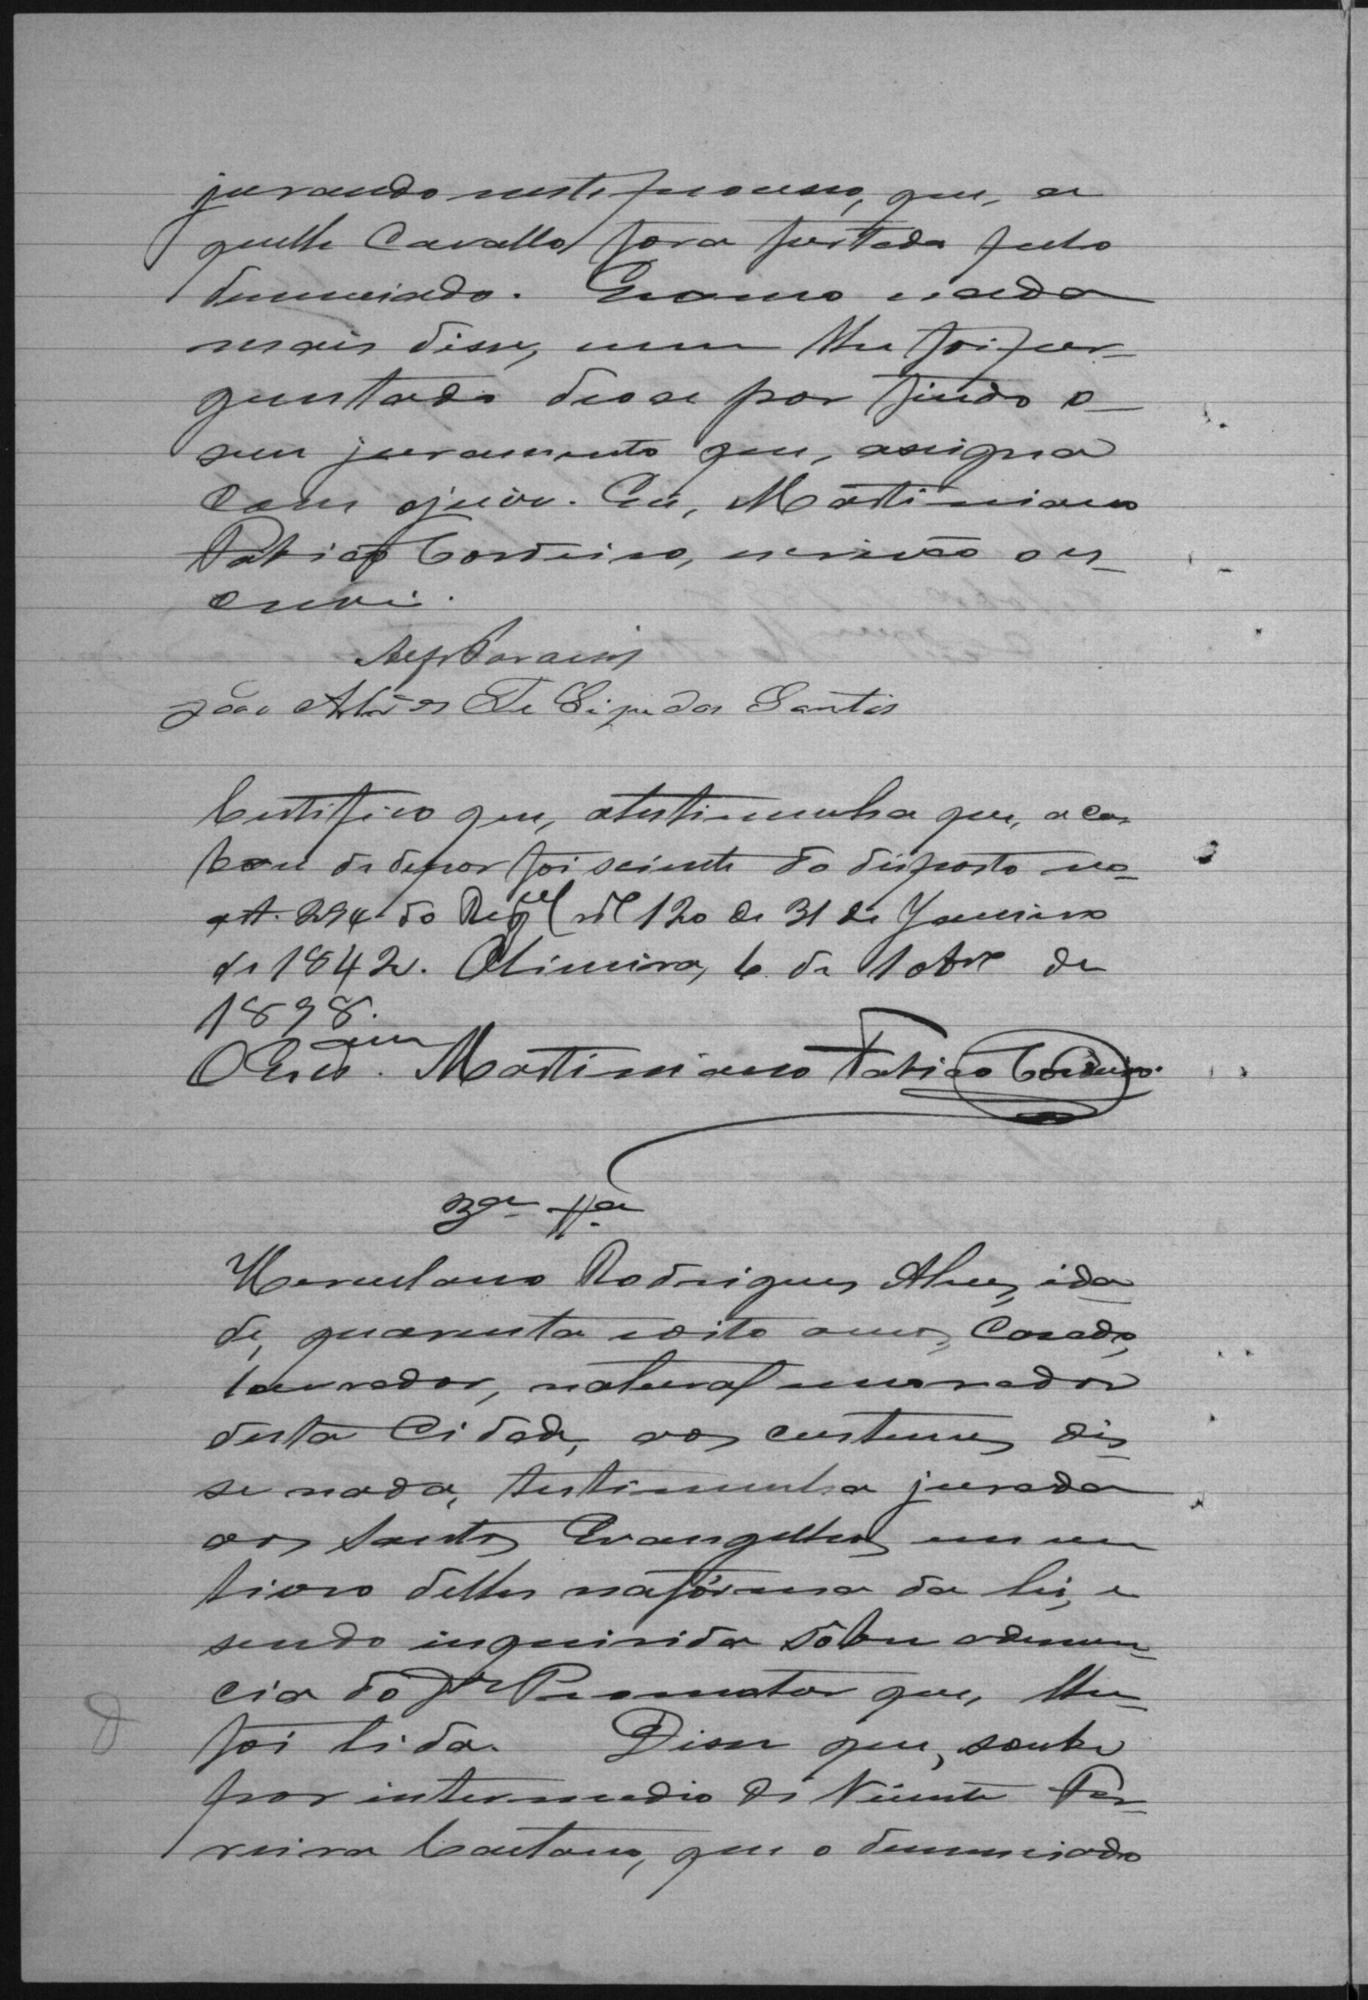 jurando neste processo, que, a
quelle Cavallo fora furtado pelo
denunciado. E como nada
mais disse, nem lhe foi per-
guntado deose por findo o
seu juramento que, assigna
com o juiz. Eu, Martiniano
Fabião Cordeiro, escrivão o es-
crevi.
João Alves Santos
Certifico que, a testimunha que, aca-
bou de depor foi sciente do disposto no
art. 294 do Regul nº 120 de 31 de Janeiro
de 1842. 6 de 10brº de
1898.
O Escrᵃᵐ Martiniano Fabião Cordeiro.
3ª ttª
Herculano Rodrigues Alves, ida
de, quarenta e oito annos, Casado,
lavrador, natural e morador
desta Cidade, aos custumes dis
se nada, testimunha jurada
aos Santos Evangelhos em um
livro delles na fórma da lei, e
sendo inquirida sôbre a denun-
cia do Dr Promotor que, lhe
foi lida. Disse que, soube
por intermedio de Vicente Fer-
reira Caetano, que o denunciado